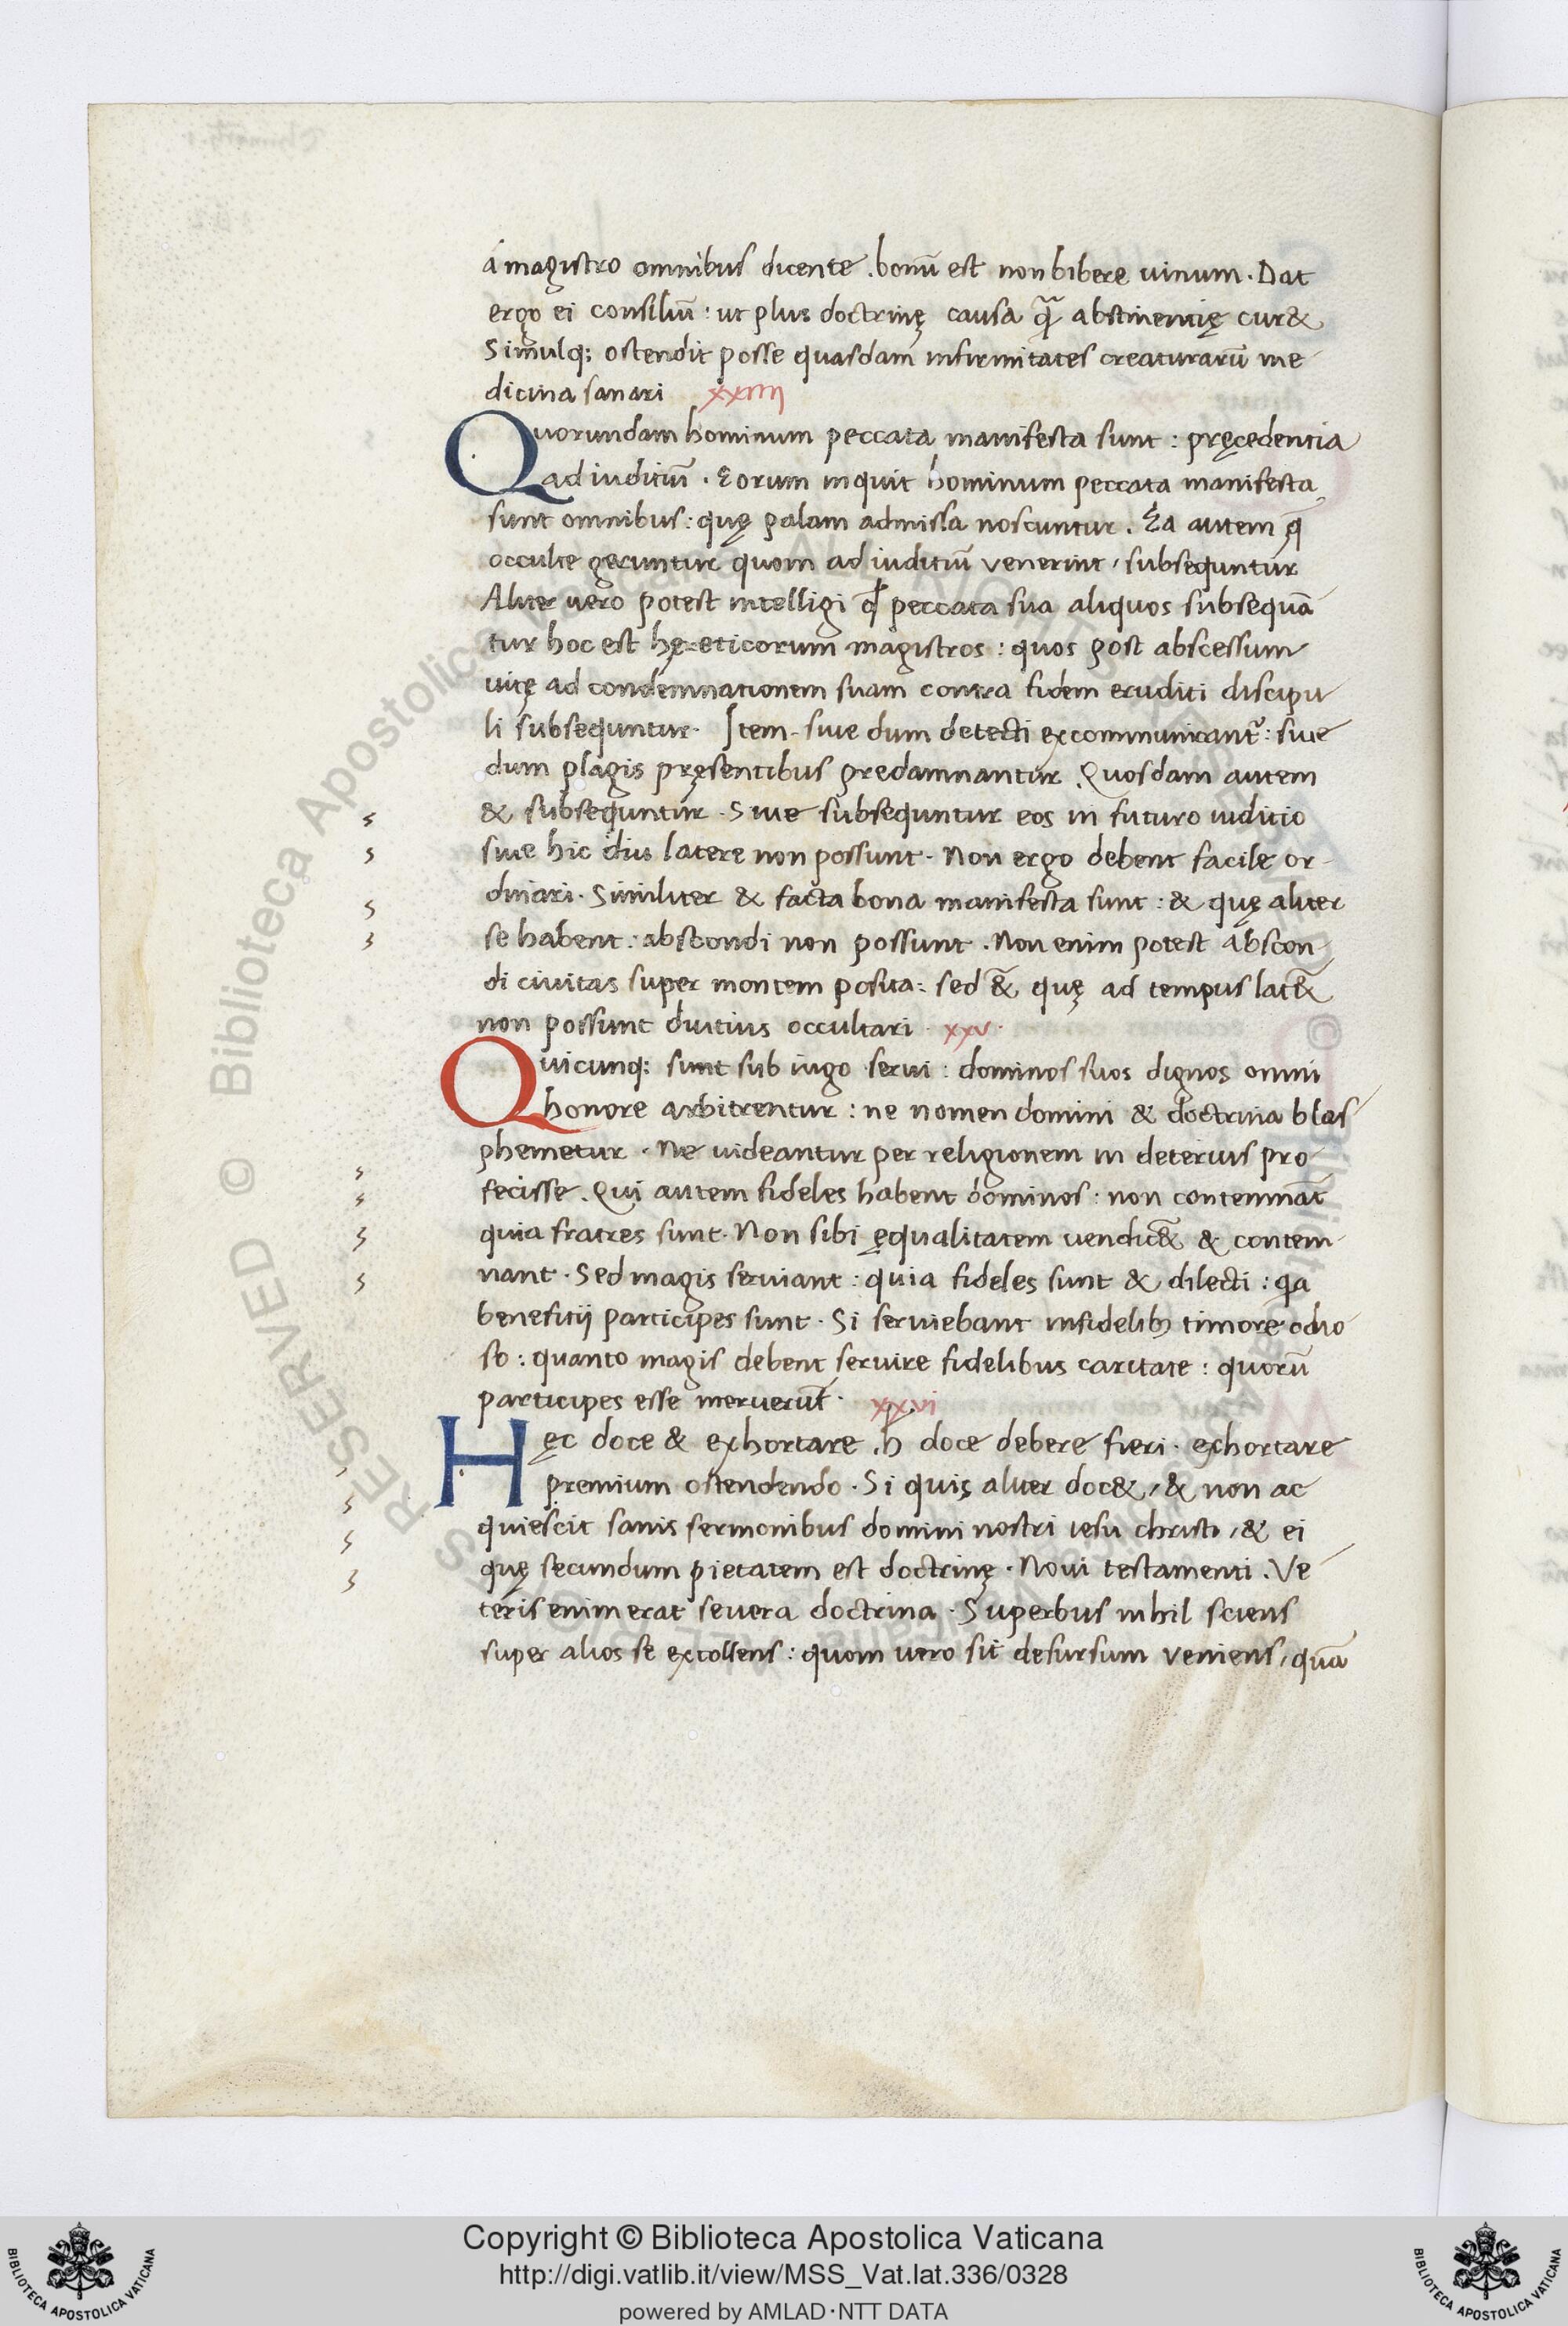 á magistro omnibus dicente . bonū est non bibere uinum . Dat
ergo ei consiliū : ut plus doctrinę causa q̃ abstinentię cur&
Simulq; ostendit posse quasdam infirmitates creaturarū me
dicina sanari xxiiii
Quorundam hominum peccata manifesta sunt : pręcedentia
ad iuditiū . Eorum inquit hominum peccata manifesta
sunt omnibus : quę palam admissa noscuntur . Ea autem q̄
occulte geruntur quom ad iuditiū venerint / subsequntur
Aliter uero potest intelligi q̄ peccata sua aliquos subsequā
tur hoc est hęreticorum magistros : quos post abscessum
uitę ad condemnationem suam contra fidem eruditi discipu
li subsequntur . Item . siue dum detecti excommunicant᷑ : siue
dum plagis pręsentibus predamnantur . Quosdam autem
& subsequntur . Siue subsequntur eos in futuro iuditio
siue hic diu latere non possunt . Non ergo debent facile or-
dinari . Similiter & facta bona manifesta sunt : & quę aliter
se habent : abscondi non possunt . Non enim potest abscon-
di ciuitas super montem posita : sed &̄ quę ad tempus lat&̄
non possunt diutius occultari . xxv .
Quicunq; sunt sub iugo serui : dominos suos dignos omni
honore arbitrentur : ne nomen domini & doctrina blas
phemetur . Ne uideantur per religionem in deterius pro-
fecisse . Qui autem fideles habent dominos : non contemnāt
quia fratres sunt . Non sibi ęqualitatem uendic&̄ & contem-
nant . Sed magis seruiant : quia fideles sunt & dilecti : qa
benefitij participes sunt . Si seruiebant infidelib; timore odio
so : quanto magis debent seruire fidelibus caritate : quorū
participes esse meruerūt . xxvi
Hęc doce & exhortare . h̄ doce debere fieri . exhortare
premium ostendendo . Si quis aliter doc& / & non ac
quiescit sanis sermonibus domini nostri iesu christi / & ei
quę secundum pietatem est doctrinę . Noui testamenti . Ve
teris enim erat seuera doctrina . Superbus nihil sciens
super alios se extollens : quom uero sit desursum veniens / quā
Copyright © Biblioteca Apostolica Vaticana
http://digi.vatlib.it/view/MSS_Vat.lat.336/0328
powered by AMLAD·NTT DATA